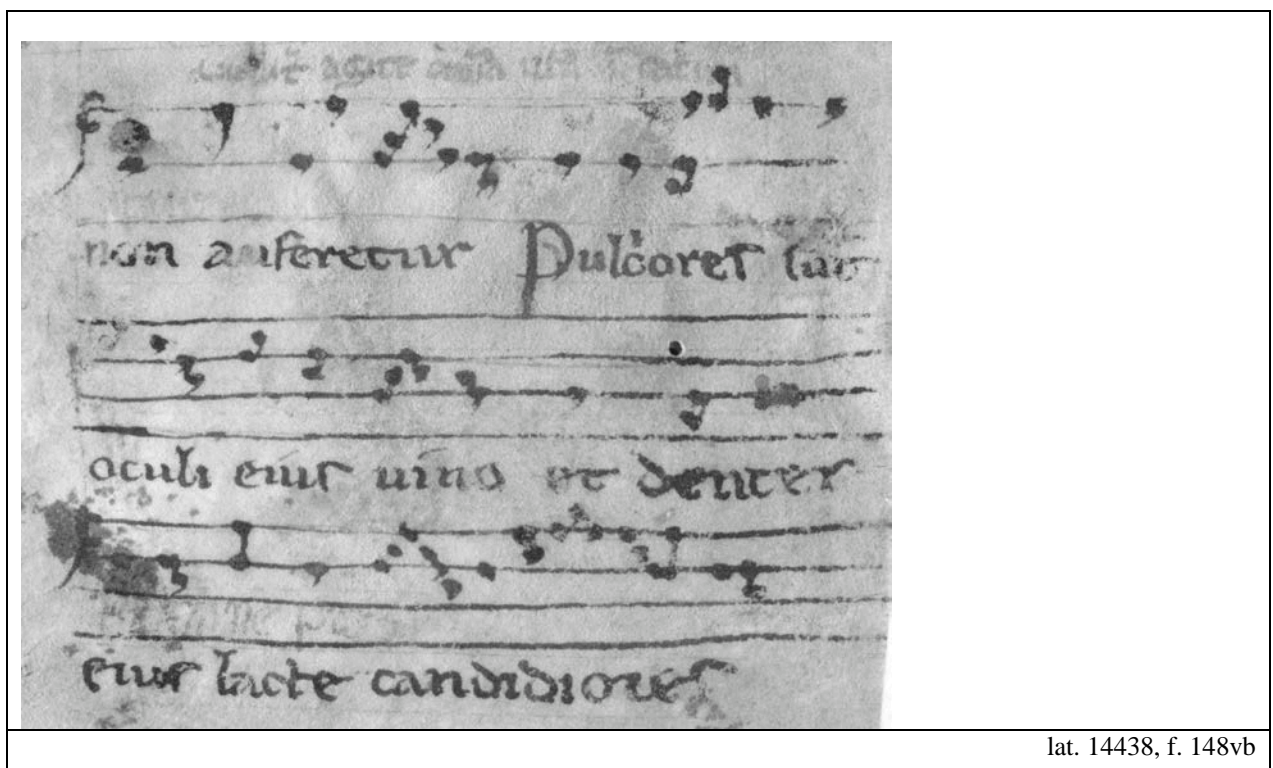 agite
non auferetur Pulcͥores sūt
oculi eius uino et dentes
eius lacte candidiores
lat. 14438, f. 148vb